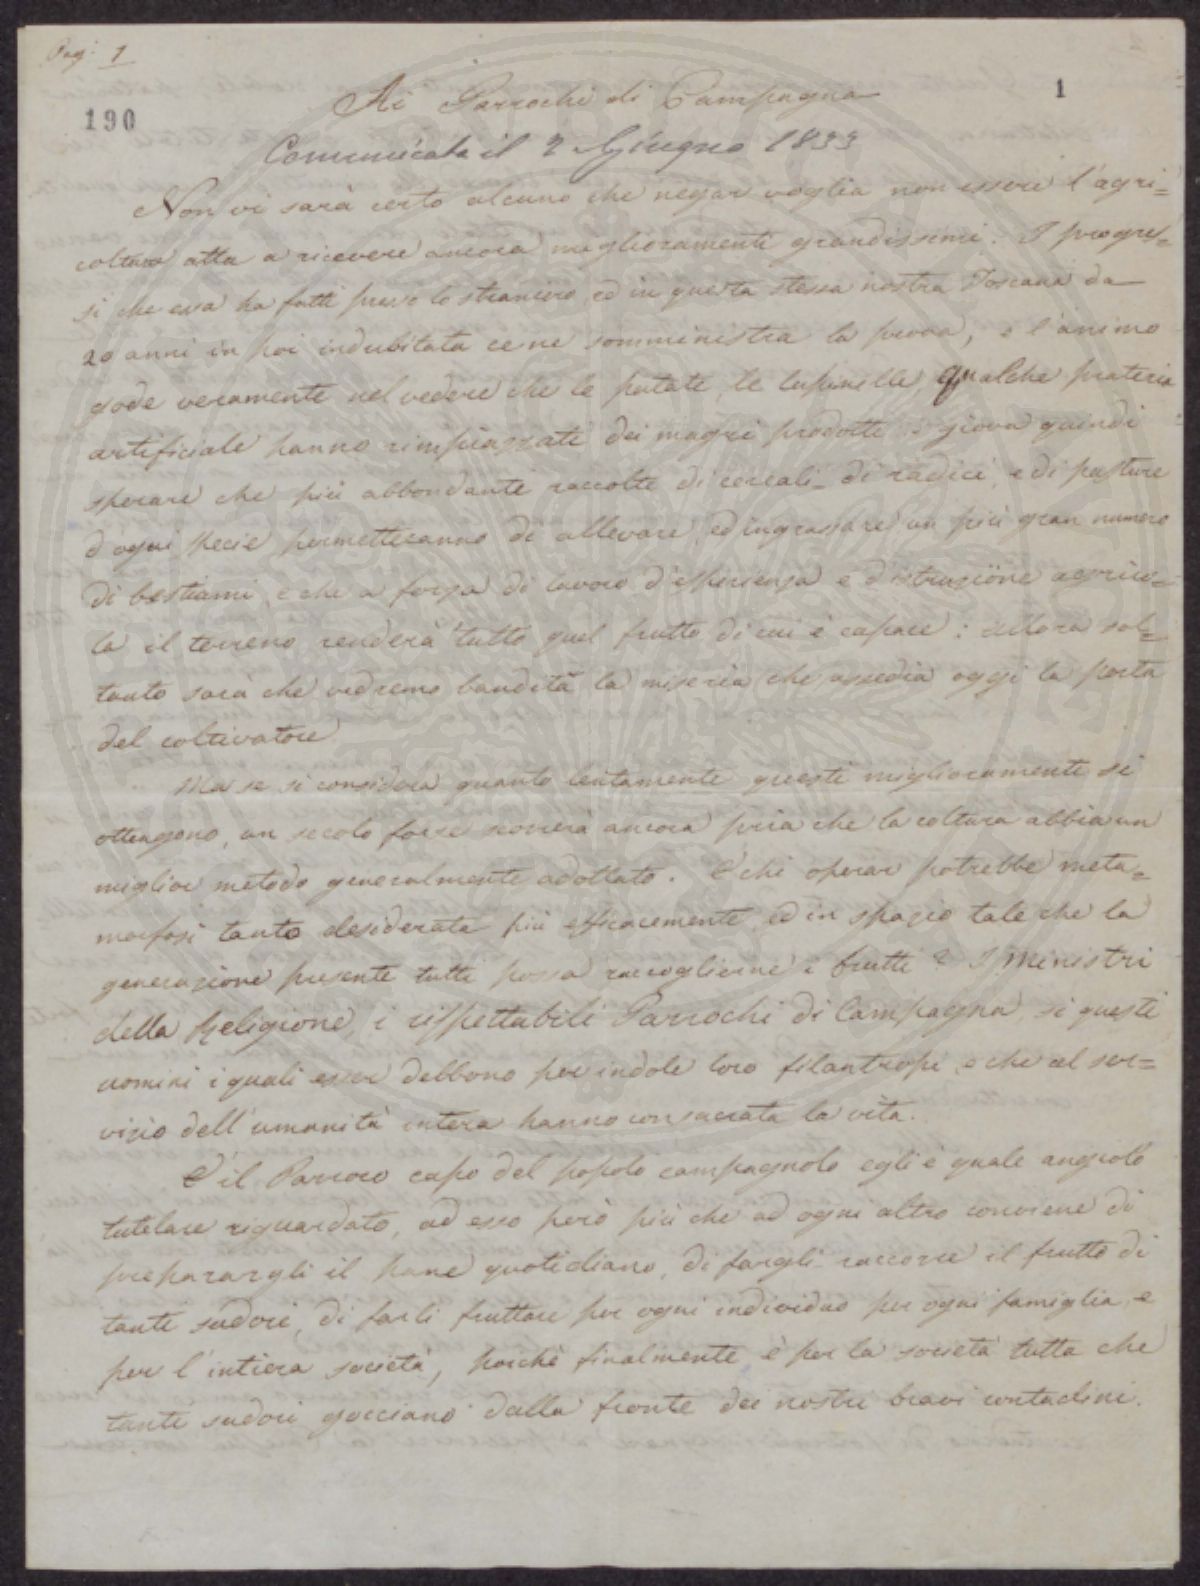 Pag: 1
190
1
Ai Parrochi di Campagna
Comunicata il 2 Giugno 1833
Non vi sarà certo alcuno che negar voglia non essere l'agri=
coltura atta a ricevere ancora miglioramenti grandissimi. I progres=
si che essa ha fatti presso lo straniero, ed in questa stessa nostra Toscana da
20 anni in poi indubitata ce ne somministra la prova, e l'animo
gode veramente nel vedere che le patate, le lupinelle, qualche prateria
artificiale hanno rimpiazzati dei magri prodotti: giova quindi
sperare che più abbondanti raccolte di cereali di radici, e di pasture
d'ogni specie permetteranno di allevare, ed ingrassare un più gran numero
di bestiami, e che a forza di lavoro d'esperienza e d'istruzione agrico=
la il terreno renderà tutto quel frutto di cui è capace: allora sol=
tanto sarà che vedremo bandita la miseria che assedia oggi la porta
del coltivatore
Ma se si considera quanto lentamente questi miglioramenti si
ottengono, un secolo forse scorrerà ancora pria che la coltura abbia un
miglior metodo generalmente adottato. E chi operar potrebbe meta=
morfosi tanto desiderata più efficacemente, ed in spazio tale che la
generazione presente tutti possa raccoglierne i frutti? I Ministri
della Religione, i rispettabili Parrochi di Campagna, si questi
uomini i quali esser debbono per indole loro filantropi, e che al ser=
vizio dell'umanità intera hanno consacrata la vita.
È il Parroco capo del popolo campagnolo egli è quale angiolo
tutelare riguardato, ad esso però più che ad ogni altro conviene di
preparargli il pane quotidiano, di fargli raccorre il frutto di
tanti sudori, di farli fruttare per ogni individuo per ogni famiglia, e
per l'intiera società, poichè finalmente è per la società tutta che
tanti sudori gocciano dalla fronte dei nostri bravi contadini.